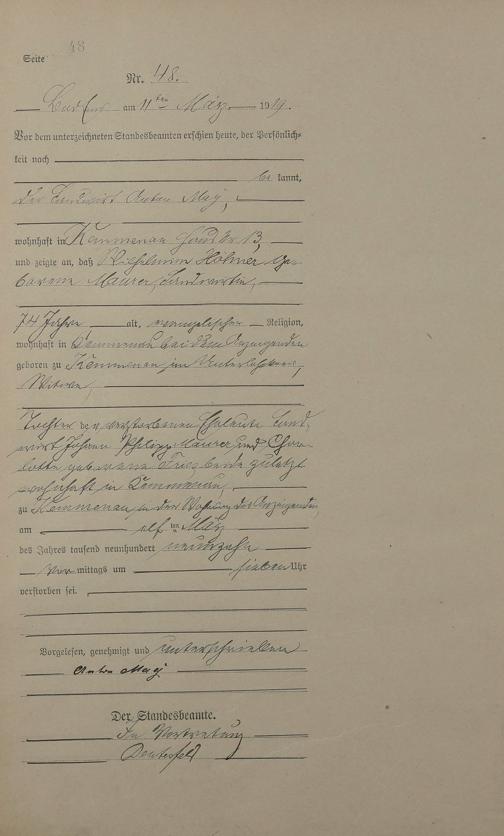 48
Seite
Nr. 48.
am 11ten März 1919.
Vor dem unterzeichneten Standesbeamten erschien heute, der Persönlich-
keit nach
be kannt,
der Landwirt Anton May,
wohnhaft in Kemmenau Haus Nr 13,
und zeigte an, daß Wilhelmine Höhner ge-
borene Maurer, Landwirtin,
74 Jahre, alt, evangelischer Religion,
wohnhaft in Kemmenau bei dem Anzeigenden
geboren zu Kemmenau im Unterlahnkreis,
Witwe,
Tochter der verstorbenen Eheleute Land-
wirt Johann Philipp Maurer und Char-
lotte geborene beide zuletzt
wohnhaft in Kemmenau,
zu Kemmenau in der Wohnung des Anzeigenden,
am elf ten März
des Jahres tausend neunhundert neunzehn
vor mittags um sieben Uhr
verstorben sei.
Vorgelesen, genehmigt und unterschrieben
Anton May
Der Standesbeamte.
In Vertretung